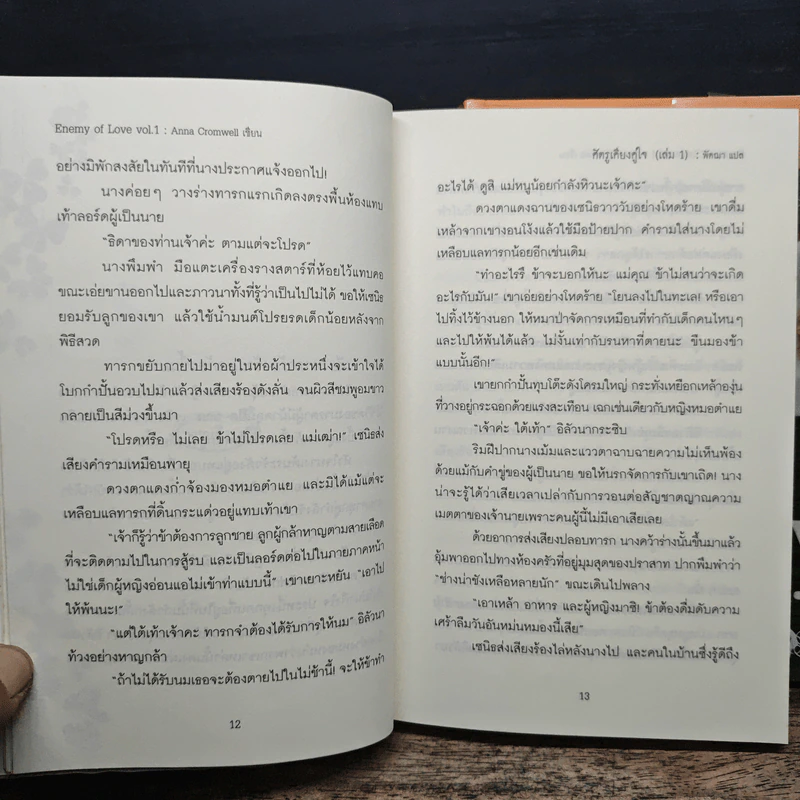 Enemy of Love vol.1 : Anna Cromwell เขียน
อย่างมิพักสงสัยในทันทีที่นางประกาศแจ้งออกไป!
นางค่อยๆ วางร่างทารกแรกเกิดลงตรงพื้นห้องแทบ
เท้าลอร์ดผู้เป็นนาย
"ธิดาของท่านเจ้าค่ะ ตามแต่จะโปรด"
นางพึมพำ มือแตะเครื่องรางสตาร์ที่ห้อยไว้แทบคอ
ขณะเอ่ยขานออกไปและภาวนาทั้งที่รู้ว่าเป็นไปไม่ได้ ขอให้เซนิธ
ยอมรับลูกของเขา แล้วใช้น้ำมนต์โปรยรดเด็กน้อยหลังจาก
พิธีสวด
ทารกขยับกายไปมาอยู่ในห่อผ้าประหนึ่งจะเข้าใจได้
โบกกำปั้นอวบไปมาแล้วส่งเสียงร้องดังลั่น จนผิวสีชมพูอมขาว
กลายเป็นสีม่วงขึ้นมา
"โปรดหรือ ไม่เลย ข้าไม่โปรดเลย แม่เฒ่า!" เซนิธส่ง
เสียงคำรามเหมือนพายุ
ดวงตาแดงก่ำจ้องมองหมอตำแย และมิได้แม้แต่จะ
เหลือบแลทารกที่ดิ้นกระแด่วอยู่แทบเท้าเขา
"เจ้าก็รู้ว่าข้าต้องการลูกชาย ลูกผู้กล้าหาญตามสายเลือด
ที่จะติดตามไปในการสู้รบ และเป็นลอร์ดต่อไปในภายภาคหน้า
ไม่ใช่เด็กผู้หญิงอ่อนแอไม่เข้าท่าแบบนี้" เขาเยาะหยัน "เอาไป
ให้พ้นนะ!"
"แต่ใต้เท้าเจ้าคะ ทารกจำต้องได้รับการให้นม" อิลัวนา
ท้วงอย่างหาญกล้า
"ถ้าไม่ได้รับนมเธอจะต้องตายไปในไม่ช้านี้! จะให้ข้าทำ
12
ศัตรูเคียงคู่ใจ (เล่ม 1) : พิคณา แปล
อะไรได้ ดูสิ แม่หนูน้อยกำลังหิวนะเจ้าคะ"
ดวงตาแดงฉานของเซนิธวาววับอย่างโหดร้าย เขาดื่ม
เหล้าจากเขางอนโง้งแล้วใช้มือป้ายปาก คำรามใส่นางโดยไม่
เหลือบแลทารกน้อยอีกเช่นเดิม
"ทำอะไรรึ ข้าจะบอกให้นะ แม่คุณ ข้าไม่สนว่าจะเกิด
อะไรกับมัน!" เขาเอ่ยอย่างโหดร้าย "โยนลงไปในทะเล! หรือเอา
ไปทิ้งไว้ข้างนอก ให้หมาป่าจัดการเหมือนที่ทำกับเด็กคนไหนๆ
และไปให้พ้นได้แล้ว ไม่งั้นเท่ากับรนหาที่ตายนะ ขืนมองข้า
แบบนั้นอีก!"
เขายกกำปั้นทุบโต๊ะดังโครมใหญ่ กระทั่งเหยือกเหล้าองุ่น
ที่วางอยู่กระฉอกด้วยแรงสะเทือน เฉกเช่นเดียวกับหญิงหมอตำแย
"เจ้าค่ะ ใต้เท้า" อิลัวนากระซิบ
ริมฝีปากนางเม้มและแววตาฉาบฉายความไม่เห็นพ้อง
ด้วยแม้กับคำขู่ของผู้เป็นนาย ขอให้นรกจัดการกับเขาเถิด! นาง
น่าจะรู้ได้ว่าเสียเวลาเปล่ากับการวอนต่อสัญชาตญาณความ
เมตตาของเจ้านายเพราะคนผู้นี้ไม่มีเอาเสียเลย
ด้วยอาการส่งเสียงปลอบทารก นางคว้าร่างนั้นขึ้นมาแล้ว
อุ้มพาออกไปทางห้องครัวที่อยู่มุมสุดของปราสาท ปากพึมพำว่า
"ช่างน่าชังเหลือหลายนัก" ขณะเดินไปพลาง
"เอาเหล้า อาหาร และผู้หญิงมาซิ! ข้าต้องดื่มดับความ
เศร้าลืมวันอันหม่นหมองนี้เสีย"
เซนิธส่งเสียงร้องไล่หลังนางไป และคนในบ้านซึ่งรู้ดีถึง
13